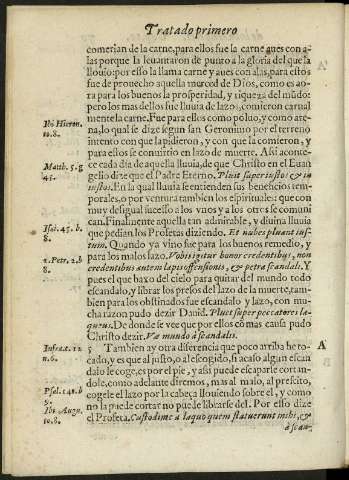 Tratado primero
comerian de la carne, para ellos fue la carne aues con a-
las porque la leuantaron de punto a la gloria del que la
llouio: por esso la llama carne y aues con alas, para estos
fue de prouecho aquella merced de Dios, como es ao-
ra para los buenos la prosperidad, y riqueza del mũdo:
pero los mas dellos fue lluuia de lazos, comieron carnal
mente la carne. Fue para ellos como poluo, y como are-
na, lo qual se dize segun san Geronimo por el terreno
intento con que la pidieron, y con que la comieron, y
para estos se conuirtio en lazo de muerte. Assi aconte-
ce cada dia de aquella lluuia, de que Christo en el Euan
gelio dize que el Padre Eterno. Pluit super iustos: & in
iustos. En la qual lluuia se entienden sus beneficios tem-
porales, o por ventura tambien los espirituales: que con
muy desigual sucesso a los vnos y a los otros se comuni
can. Finalmente aquella tan admirable, y diuina lluuia
que pedian los Profetas diziendo. Et nubes pluant ius-
tum. Quando ya vino fue para los buenos remedio, y
para los malos lazo. Vobis igitur honor credentibus, non
credentibus autem lapis offensionis, & petra scandali. Y
pues el que baxo del cielo para quitar del mundo todo
escandalo, y librar los presos del lazo de la muerte, tam-
bien para los obstinados fue escandalo y lazo, con mu-
cha razon pudo dezir Dauid. Pluet super peccatores la-
queos. De donde se vee que por ellos cõ mas causa pudo
Christo dezir. Væ mundo à scandalis.
5 Tambien ay otra diferencia que poco arriba he to-
cado, y es que al justo, o al escogido, si acaso algun escan
dalo le coge, es por el pie, y assi puede escaparle cortan-
dole, como adelante diremos, mas al malo, al prescito,
cogele el lazo por la cabeça llouiendo sobre el, y como
no la puede cortar no puede librarse del. Por esso dize
el Profeta. Custodi me a laqueo quem statuerunt mihi, &
à scan-
Ibi Hieron.
10.8.
Matth. 5. g
45.
Isai. 45. b.
8.
1. Petr. 2. b
8.
Infra c. 12
n. 6.
A
Psal. 140. b
9.
Ibi Augu.
10.8.